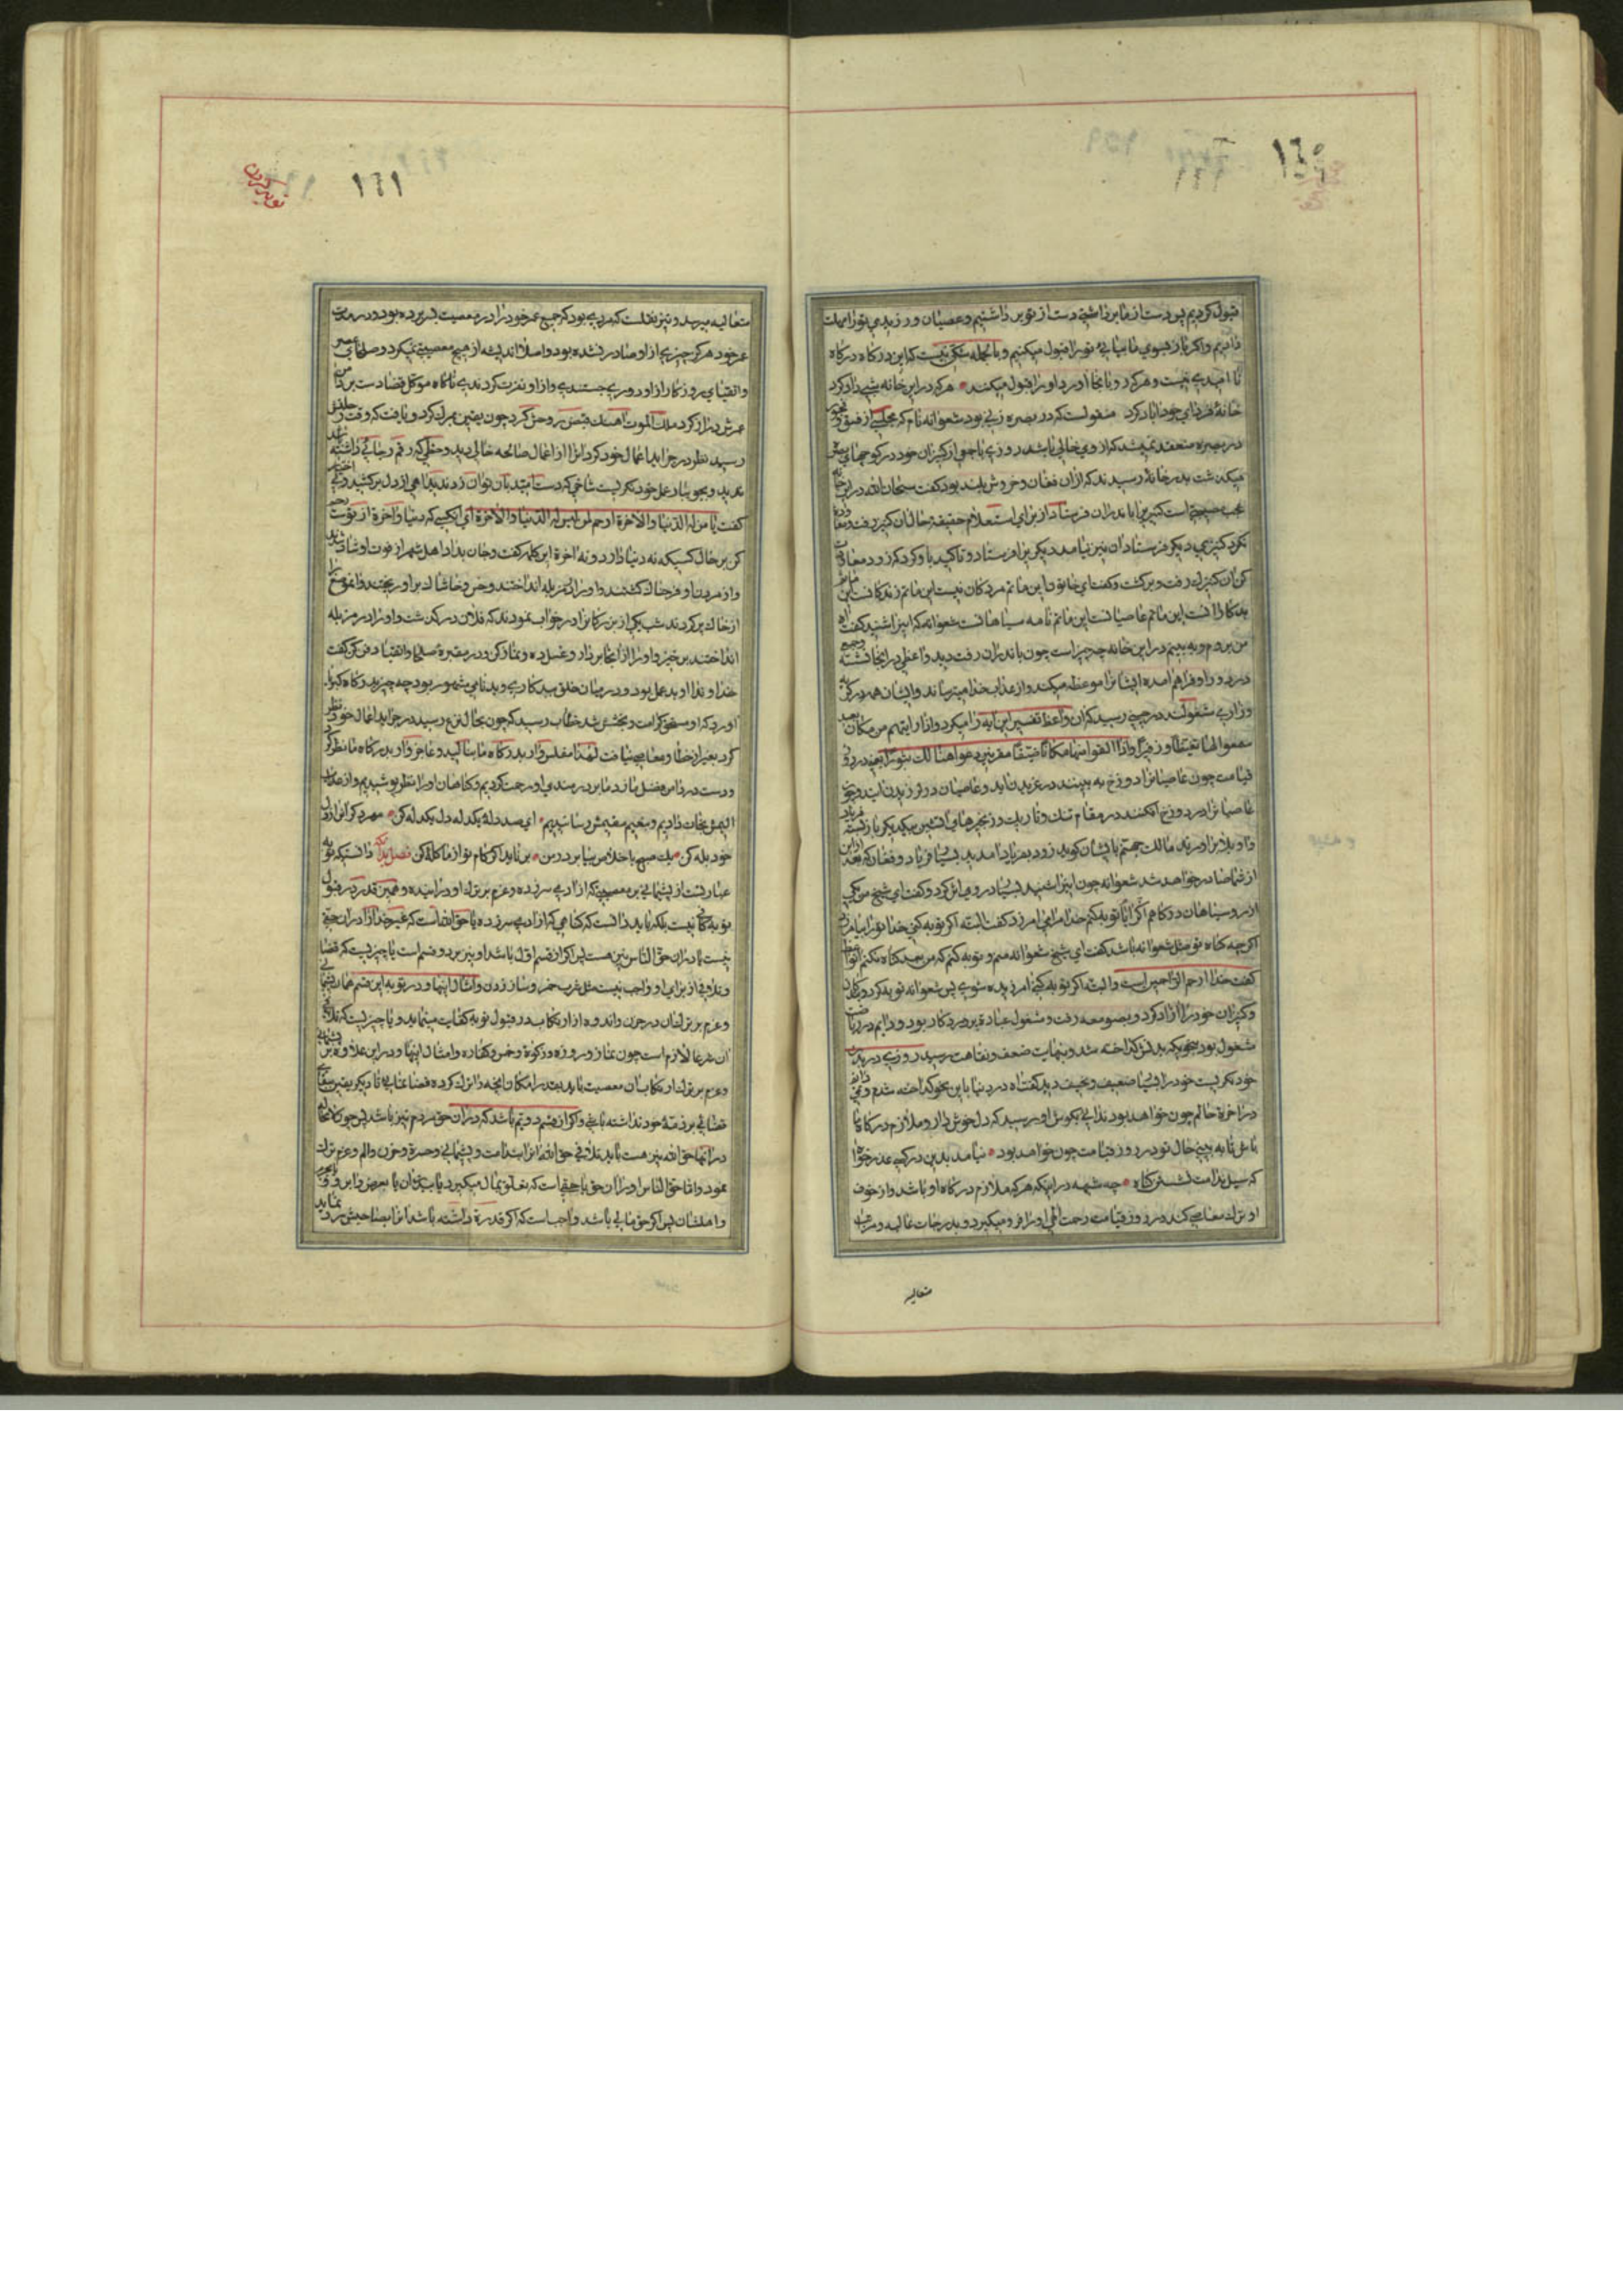 ١٦٠
قبول کردیم پس دست از ما برداشتی دست از تو برداشتیم و عصیان ورزیدی تو را مهلت
دادیم و اگر باز بسوی ما بیایی تو را قبول میکنیم و بالجمله شکی نیست که این درگاه درگاه
نا امیدی نیست و هر که رو بانجا آورد او را قبول میکنند هر که در این خانه شبی داد کرد
خانهٔ فردای خود اباد کرد منقولست که در بصره زنی بود شعوانه نام که مجلسی از فسق و فجور
در بصره منعقد نمیشد که از وی خالی باشد روزی با جمعی از کنیزان خود در کوچهای بصره
میکذشت بدر خانهٔ رسیدند که از ان فغان و خروش بلند بود کفت سبحان الله در این خانه
عجب است کنیزی را باندران فرستاد از برای استعلام حقیقة حال ان کنیز رفت و معاودت
نکرد کنیزی دیکر فرستاد ان نیز نیامد دیکری را فرستاد و تاکید باو کرد که زود معاودت
کن ان کنیزک رفت و برکشت و کفت ای خاتون این ماتم مردکان نیست این ماتم زندکانست این ماتم
بدکارانست این ماتم عاصیانست این ماتم نامه سیاهانست شعوانه که اینرا شنید کفت اه
من بروم و به بینم در این خانه چه چیز است چون باندران رفت دید واعظی در انجا نشسته و جمعی
در دور او فراهم امده ایشانرا موعظه میکند و از عذاب خدا میترساند و ایشان همه در گریه
و زاری مشغولند در حینی رسید که ان واعظ تفسیر این ایه را میکرد و اذا راتهم من مکان بعید
سمعوا لها تغیظا و زفیرا و اذا القوا منها مکانا ضیقا مقرنین دعوا هنالک ثبورا یعنی در روز
قیامت چون عاصیانرا دوزخ به بیند در غریدن اید و عاصیان در لرزیدن ایند و چون
عاصیانرا در دوزخ افکنند در مقام تنک و تاریک و زنجیرهای اتشین بیکدیکر باز بسته فریاد
واویلا برآورند مالک جهنم بایشان کوید زود بفریاد امدید بسی فریاد و فغان که بعد از این
از شما صادر خواهد شد شعوانه چون اینرا شنید بسیار در وی اثر کرد و کفت ای شیخ من یکی
از روسیاهان درکاهم اکر توبه کنم خدا مرا می امرزد کفت البته اکر توبه کنی خدا تو را بیامرزد
اکرچه کناه تو مثل شعوانه باشد کفت ای شیخ شعوانه منم و توبه کنم که من بعد کناه نکنم واعظ
کفت خدا ارحم الراحمین است و البته اکر توبه کنی امرزیده شوی پس شعوانه توبه کرد و بندکان
و کنیزان خود را ازاد کرد و بصومعه رفت و مشغول عبادة پروردکار بود و دایم در ریاضت
مشغول بود بنحویکه بدنش کداخته شد و بنهایت ضعف و نقاهت رسید روزی در بدن
خود نکریست خود را بسیار ضعیف و نحیف دید کفت اه در دنیا باین نحو کداخته شدم و نمیدانم
در اخرة حالم چون خواهد بود ندایی بکوش او رسید که دل خوش دار و ملازم درکاه ما
باش تا به بینی حال تو در روز قیامت چون خواهد بود نیامد بدین در کسی عذرخواه
که سیل ندامت نشستش کناه چه شبهه در اینکه هر که ملازم درکاه او باشد و از خوف
او ترک معاصی کند در روز قیامت رحمت الهی او را فرو میکیرد و بدرجات عالیه و مراتب
متعالیه
١٦١
متعالیه میرسد و نیز نقلست که مردی بود که جمیع عمر خود را در معصیت بسر برده بود و در مدت
عمر خود هرکز چیزی از او صادر نشده بود و اصلا اندیشه از هیچ معصیتی نمیکرد و صلحای عصر
و اتقیای روزکار از او دوری جستندی و از او نفرت کردندی ناکاه موکل قضا دست بر دامن
عمرش دراز کرد ملک الموت اهنک قبض روحش کرد چون یقین بمرک کرد و یافت که وقت رحلتش
رسید نظر در جراید اعمال خود کرد انرا از اعمال صالحه خالی دید و خطی که رقم رجائی داشته باشد
ندید و بجویبار عمل خود نکریست شاخی که دست امید بان توان زد ندید اهی از دل برکشید و بی اختیار
کفت یا من له الدنیا و الاخرة ارحم لمن لیس له الدنیا و الاخرة ای انکسی که دنیا و اخرة از توست رحم
کن بر حال کسیکه نه دنیا دارد و نه اخرة این کلمه کفت و جان بداد اهل شهر از فوت او شاد شدند
و از مردن او فرحناک کشتند و او را در مزبله انداختند و خس و خاشاک بر او ریختند و انموضع را
از خاک پر کردند شب یکی از بزرکانرا در خواب نمودند که فلان درکذشت و او را در مزبله
انداختند برخیز و او را از انجا بردار و غسل ده و نماز کن و در مقبره صلحا و اتقیا دفن کن کفت
خداوندا او بدعمل بود و در میان خلق ببدکاری و بدنامی مشهور بود چه چیز بدرکاه کبریا
اورد که او مستحق کرامت و بخشش شد خطاب رسید که چون بحال نزع رسید در جراید اعمال خود نظر
کرد بغیر از خطا و معاصی نیافت لهذا مفلس وار بدرکاه ما بنالید و عاجزوار بدرکاه ما نظر کرد
و دست در دامن فضل ما زد ما بر دردمندی او رحمت کردیم و کناهان او را نظر پوشیدیم و از عذاب
الیمش نجات دادیم و بنعیم مقیمش رسانیدیم ای صد دله یکدله دل یکدله کن مهر دکران از دل
خود یله کن یک صبح باخلاص بیا بر در من بر ناید اکر کام تو از ما کله کن فصل بدانکه دانستیکه توبه
عبارتست از پشیمانی بر معصیتیکه از ادمی سرزده و عزم بر ترک او در اینده و همین قدر در قبول
توبه کافی نیست بلکه باید دانست که کناهی که از ادمی سرزده یا حق الله است که غیر خدا را در ان حقی
نیست یا در ان حق الناس نیز هست پس اکر از قسم اول باشد او نیز بر دو قسم است یا چیزیست که قضا
و تلافی از برای او واجب نیست مثل شرب خمر و ساز زدن و امثال اینها و در توبه این قسم همان پشیمانی
و عزم بر ترک ان در حزن و اندوه از ارتکاب در قبول توبه کفایت مینماید و یا چیزیست که تلافی
ان شرعا لازم است چون نماز و روزه و زکوة و خمس و کفاره و امثال اینها و در این علاوه بر پشیمانی
و عزم بر ترک ارتکاب ان معصیت باید بقدر امکان و انچه را ترک کرده قضا نماید تا دیکر یقین
قضائی بر ذمهٔ خود نداشته باشی و اکر از قسم دویم باشد که در ان حق مردم نیز باشد پس چون
در انها حق الله نیز هست باید تلافی حق الله انرا بندامت و پشیمانی و حسرة و حزن و الم و عزم ترک
نمود و اما حق الناس او را ان حق یا حقیست که تعلق بمال میکیرد یا ببدن ان یا بعرض و ابرو و
و اهلشان پس اکر حق مالی باشد واجب است که اکر قدرة داشته باشد انرا بصاحبش رد نماید